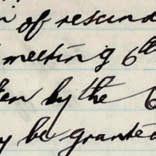 of rescind
meeting 6th
by the
y be granted